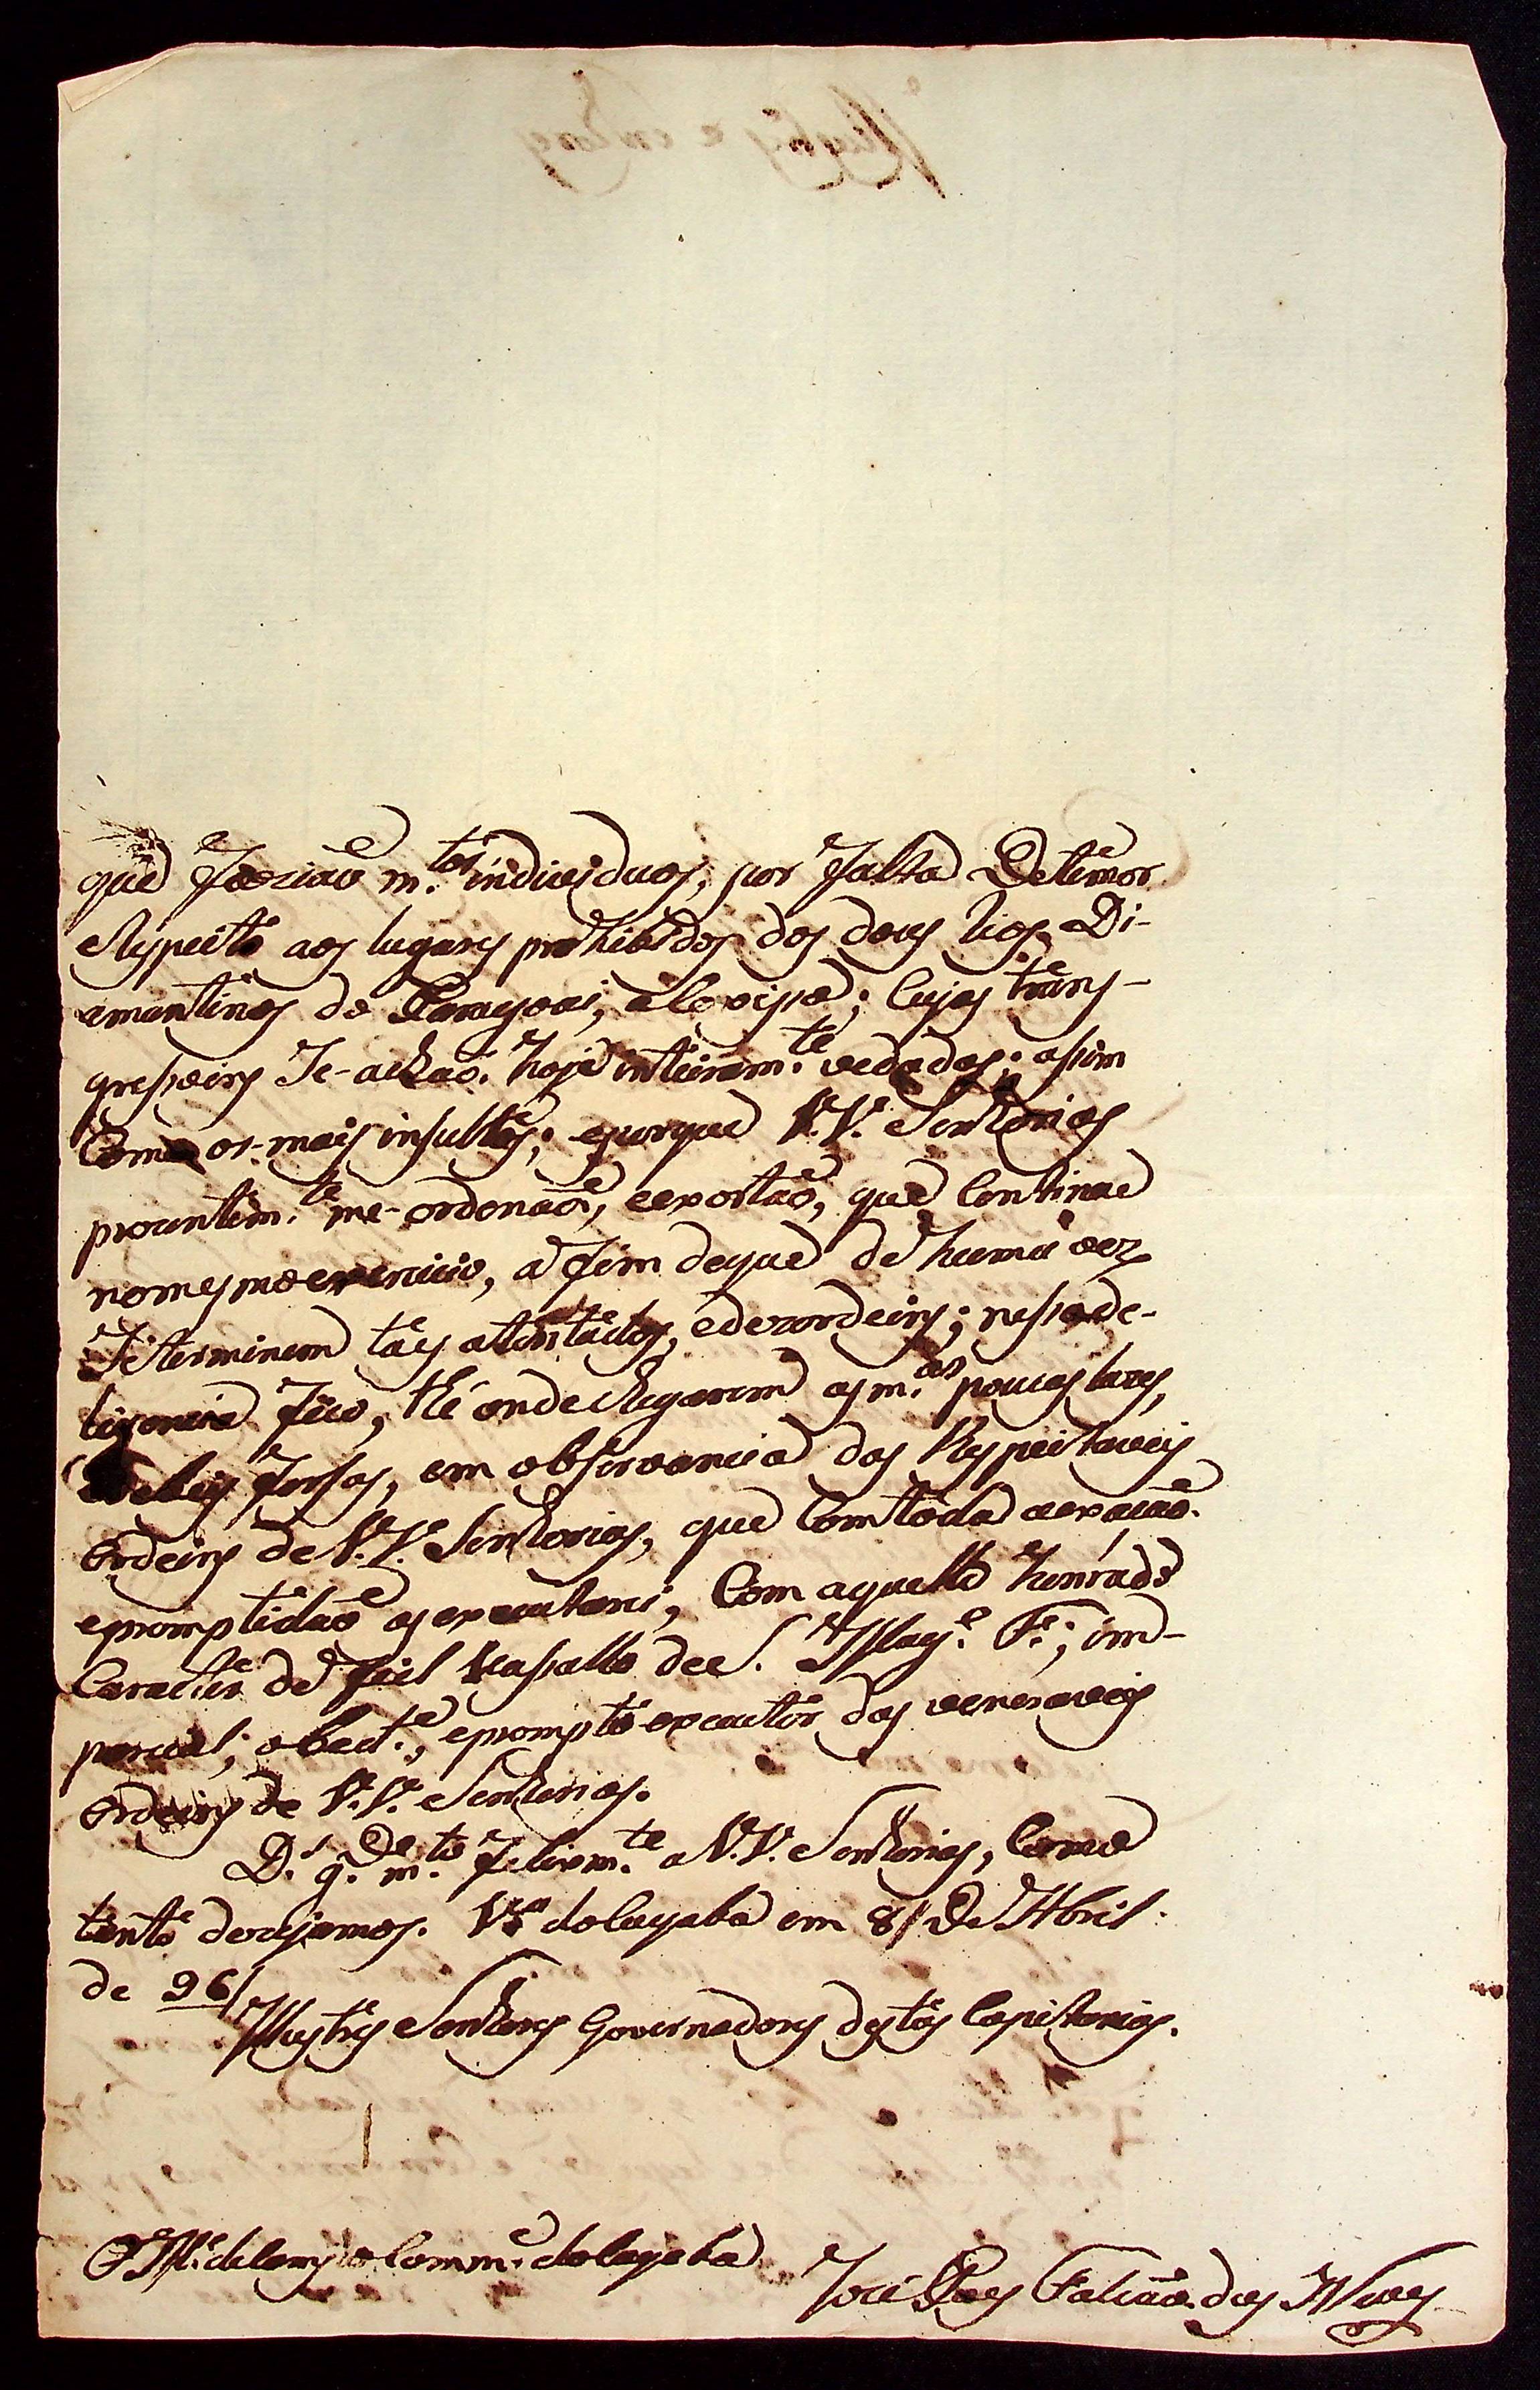 que faziaõ m.tos individuos, por falta de temor
e Respeito aos lugares prohibidos dos dous Rios Di-
amantinos do Paragoai, e Coxipó; Cujas trans-
gressoins Se-achaõ hoje inteiram.te vedadas; assim
Como os-mais insultos; eporque V.V. Senhorias
me-ordenaõ, eexortaõ, que Continue
nomesmo exercicio, a fim deque de huma vez
Seterminem tais atentados, edezordeins; nessa de-
ligencia fico, thé onde chegarem as m.as poucas luzes,
e debeis forsas, em observancia das Respeitaveis
Ordeins de V.V. Senhorias, que Comtoda aexacaõ
epromptidaõ as executarei, Com aquelle honrado
Caracter de fiel Vassallo de S. Mag.e F.; im-
parcial, obed.e, eprompto executor das veneraveis
Ordeins de V.V. Senhorias.
D.s g.de m.to felizm.te a V.V. Senhorias, Como
tanto dezejamos. V.a do Cuyaba em 8 de Abril
de 96
Illustres Senhores Governadores destas Capitanias.
O M.e de Campo Comm.e do Cuyaba
José Paes Falcaõ das Neves